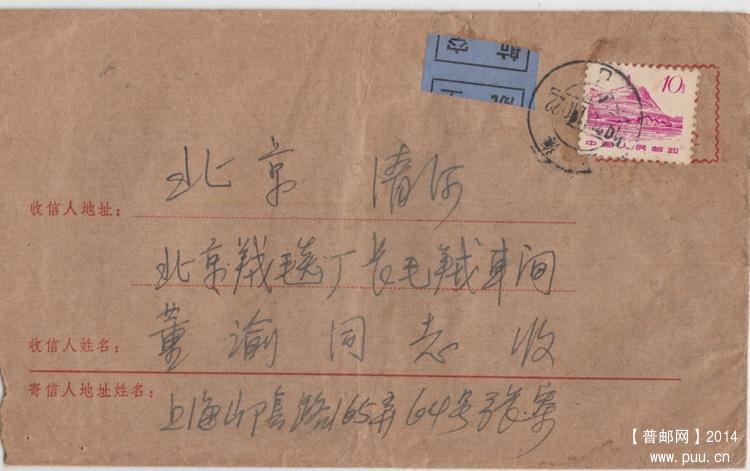 10分
中国人民邮政
北京 清河
收信人地址:
北京羢毯厂长毛羢车间
收信人姓名: 董渝同志收
寄信人地址姓名:
上海山阴路165弄64号张寄
【普邮网】2014
www.puu.cn